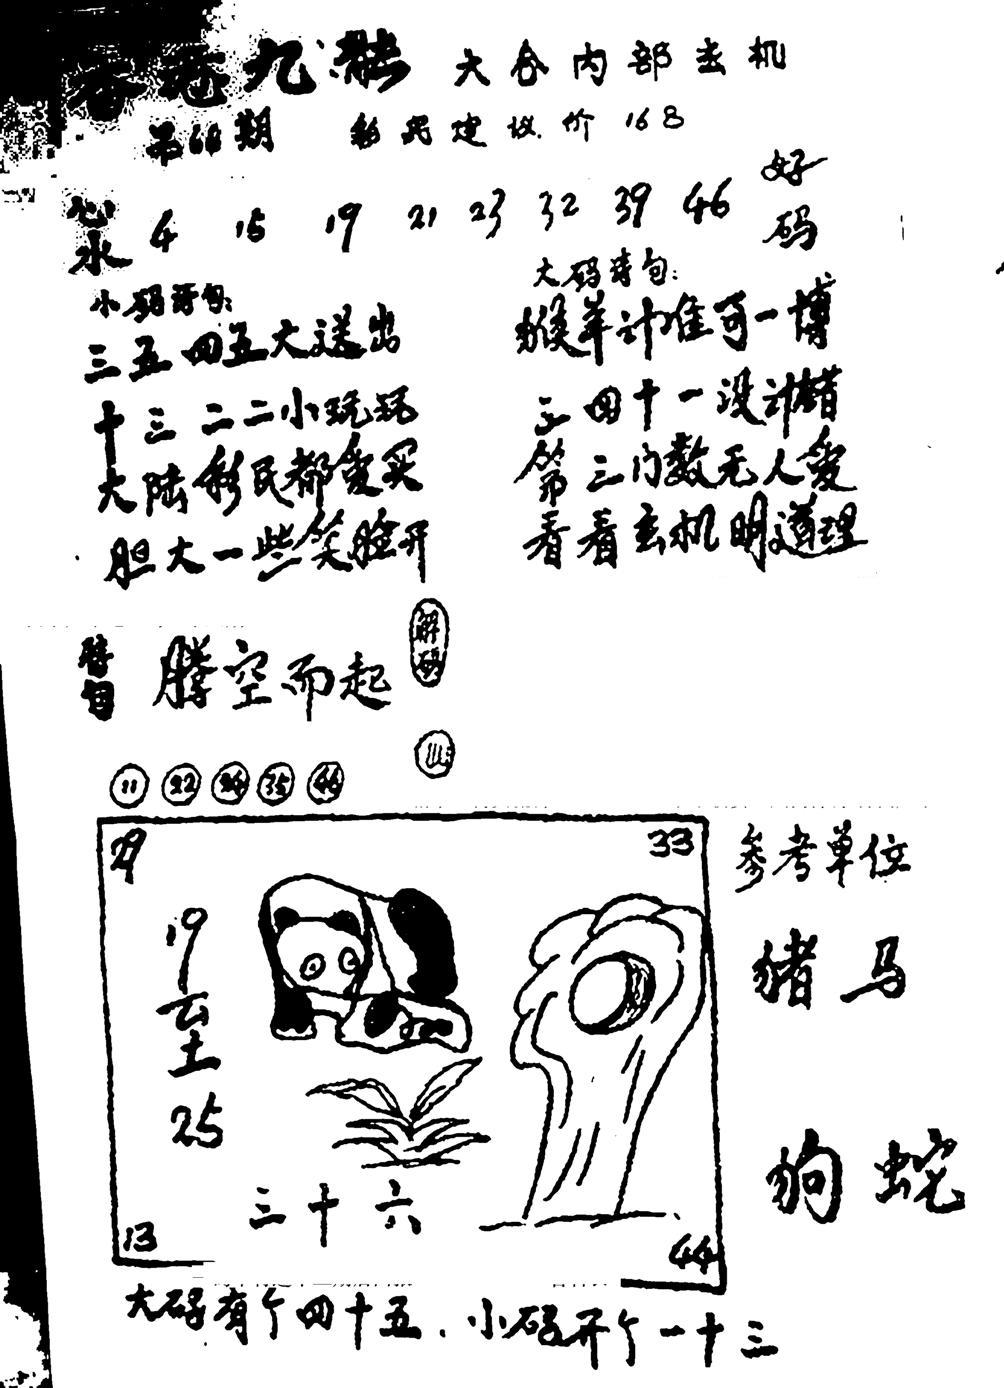 香港九龙 六合内部玄机
第64期 彩民建议价168
心水 4 15 19 21 23 32 39 46 好码
小码诗句:
三五四五大送出
十三二二小玩玩
大陆彩民都爱买
胆大一些笑脸开
大码诗句:
猴羊计准可一博
三四十一没计错
第三门数无人爱
看看玄机明道理
腾空而起
解码
11 22 24 35 46
29 33
19至25
三十六
13 44
参考单位
猪 马
狗 蛇
大码有个四十五.小码开个一十三